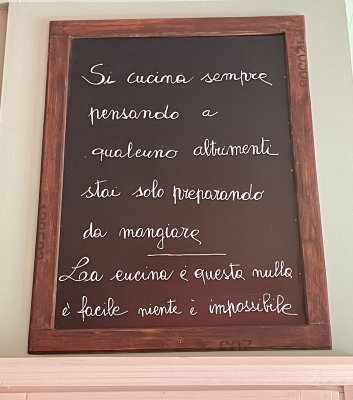 Si cucina sempre
pensando a
qualcuno altrimenti
stai solo preparando
da mangiare
La cucina è questa nulla
è facile niente è impossibile